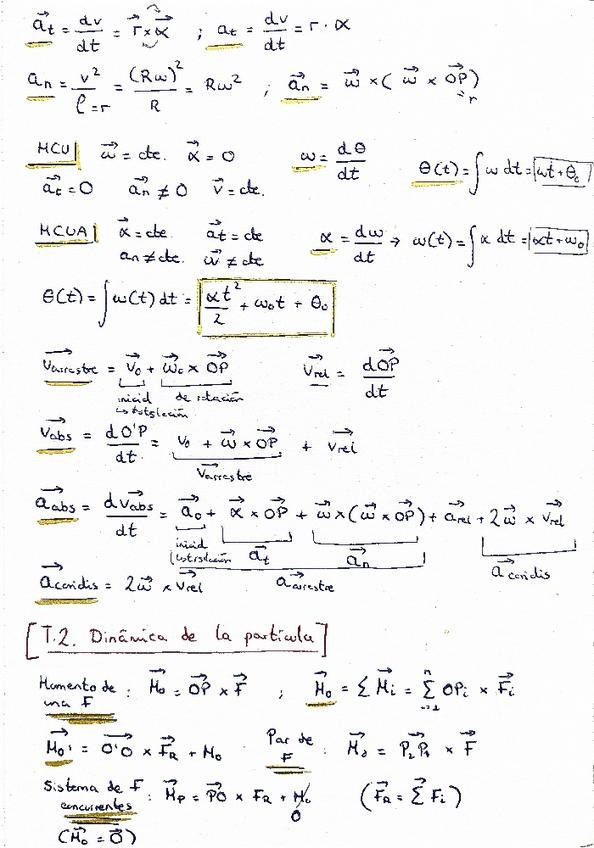 a⃗t = dv⃗/dt = r⃗ × α⃗ ; at = dv/dt = r · α
an = v²/ρ=r = (Rω)²/R = Rω² ; a⃗n = ω⃗ × (ω⃗ × OP⃗) =r
MCU ω⃗ = cte. α⃗ = 0 ω = dθ/dt θ(t) = ∫ ω dt = ωt + θ₀
a⃗t = 0 a⃗n ≠ 0 v⃗ = cte.
MCUA α⃗ = cte a⃗t = cte α = dω/dt → ω(t) = ∫ α dt = αt + ω₀
an ≠ cte. ω⃗ ≠ cte
θ(t) = ∫ ω(t) dt = αt²/2 + ω₀t + θ₀
v⃗arrastre = v⃗₀ + ω⃗₀ × OP⃗ v⃗rel = dOP⃗/dt
inicial de rotación
↳ traslación
v⃗abs = dO'P⃗/dt = v₀ + ω⃗ × OP⃗ + v⃗rel
v⃗arrastre
a⃗abs = dv⃗abs/dt = a⃗₀ + α⃗ × OP⃗ + ω⃗ × (ω⃗ × OP⃗) + a⃗rel + 2ω⃗ × v⃗rel
inicial traslación a⃗t a⃗n a⃗coriolis
a⃗coriolis = 2ω⃗ × v⃗rel a⃗arrastre
[T.2. Dinámica de la partícula]
Momento de una F : M⃗₀ = OP⃗ × F⃗ ; M⃗₀ = Σ M⃗i = Σ OPi × F⃗i
M⃗₀' = O'O⃗ × F⃗R + M₀ Par de F : M⃗₀ = P₂P₁⃗ × F⃗
Sistema de F : M⃗P = PO⃗ × FR + M₀ 0 (F⃗R = Σ F⃗i)
concurrentes
(M⃗₀ = 0⃗)